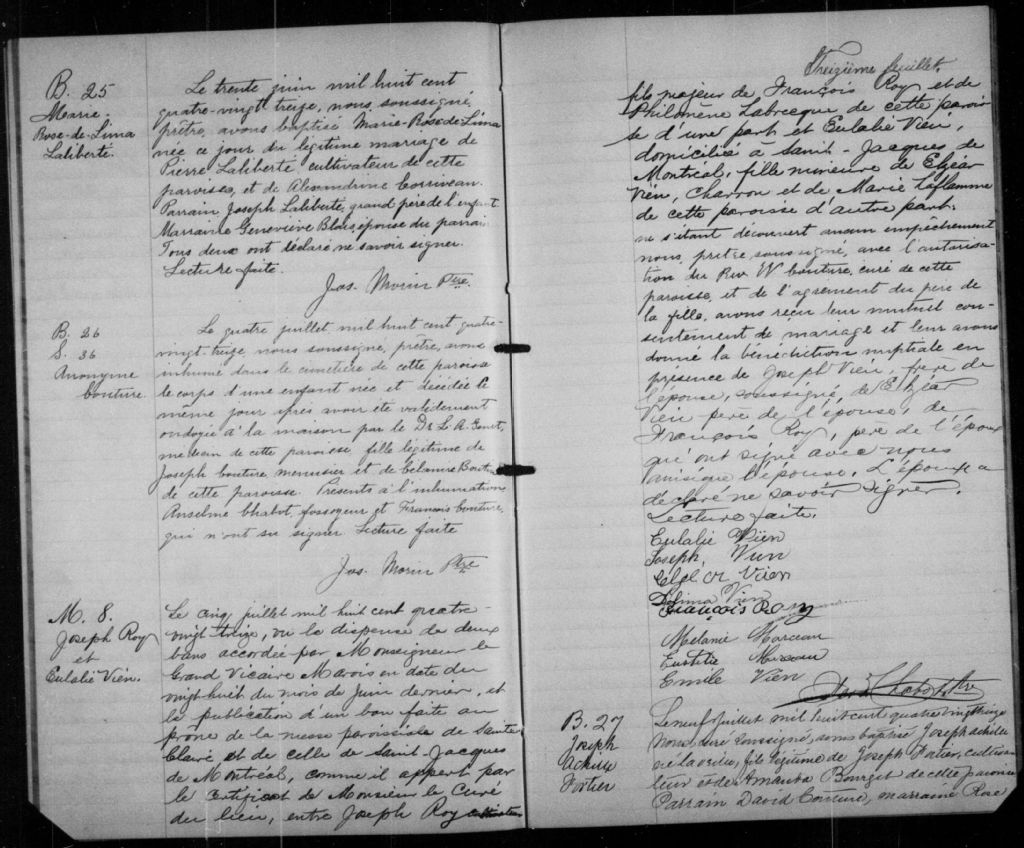 B. 25
Marie-
Rose-de-Lima
Laliberté.
Le trente juin mil huit cent
quatre-vingt treize, nous, soussigné,
prêtre, avons baptisé Marie-Rose de Lima
née ce jour du légitime mariage de
Pierre Laliberté cultivateur de cette
paroisse, et de Alexandrine Corriveau.
Parrain Joseph Laliberté, grand père de l'enfant
Marraine Geneviève Blais, épouse du parrain.
Tous deux ont déclaré ne savoir signer.
Lecture faite.
Jos. Morin Ptre
B. 26
S. 36
Anonyme
Couture
Le quatre juillet mil huit cent quatre-
vingt-treize, nous soussigné, prêtre, avons
inhumé dans le cimetière de cette paroisse
le corps d'une enfant née et décédée le
même jour après avoir été validement
ondoyée à la maison par le Dr L. A.
médecin de cette paroisse, fille légitime de
Joseph Couture menuisier et de Célanire
de cette paroisse. Présents à l'inhumation
Anselme Chabot, fossoyeur et Francois Couture,
qui n'ont su signer. Lecture faite
Jos. Morin Ptre
M. 8.
Joseph Roy
et
Eulalie Vien.
Le cinq juillet mil huit cent quatre-
vingt treize, vu la dispense de deux
bans accordée par Monseigneur le
Grand Vicaire Marois en date du
vingt-huit du mois de Juin dernier, et
la publication d'un ban faite au
prône de la messe paroissiale de Sainte
Claire et de celle de Saint-Jacques
de Montréal, comme il appert par
le certificat de Monsieur le Curé
du lieu, entre Joseph Roy cultivateur
Treizième feuillet.
fils majeur de François Roy et de
Philomène Labrecque de cette parois-
se d'une part et Eulalie Vien,
domiciliée à Saint-Jacques de
Montréal, fille mineure de Elzéar
Vien, Charron et de Marie Laflamme
de cette paroisse d'autre part.
ne s'étant découvert aucun empêchement
nous, prêtre soussigné, avec l'autorisa-
tion du Rev W Couture, curé de cette
paroisse, et de l'agrément du père de
la fille, avons reçu leur mutuel con-
sentement de mariage et leur avons
donné la bénédiction nuptiale en
présence de Joseph Vien, frère de
l'épouse, soussigné, de Elzéar
Vien père de l'épouse, de
François Roy, père de l'époux
qui ont signé avec nous
ainsi que l'épouse. L'époux a
déclaré ne savoir signer.
Lecture faite.
Eulalie Vien
Joseph, Vien
Vien
Délima Vien
François Roy
Mélanie Marceau
Marceau
Emile Vien
B. 27
Joseph
Achille
Fortier
Le neuf Juillet mil huit cent quatre vingt treize
Nous curé soussigné, avons baptisé Joseph achille
né la veille, fils légitime de Joseph Fortier, cultiva-
teur et de Amanda Bourget de cette paroisse
Parrain David Couture, marraine Rose